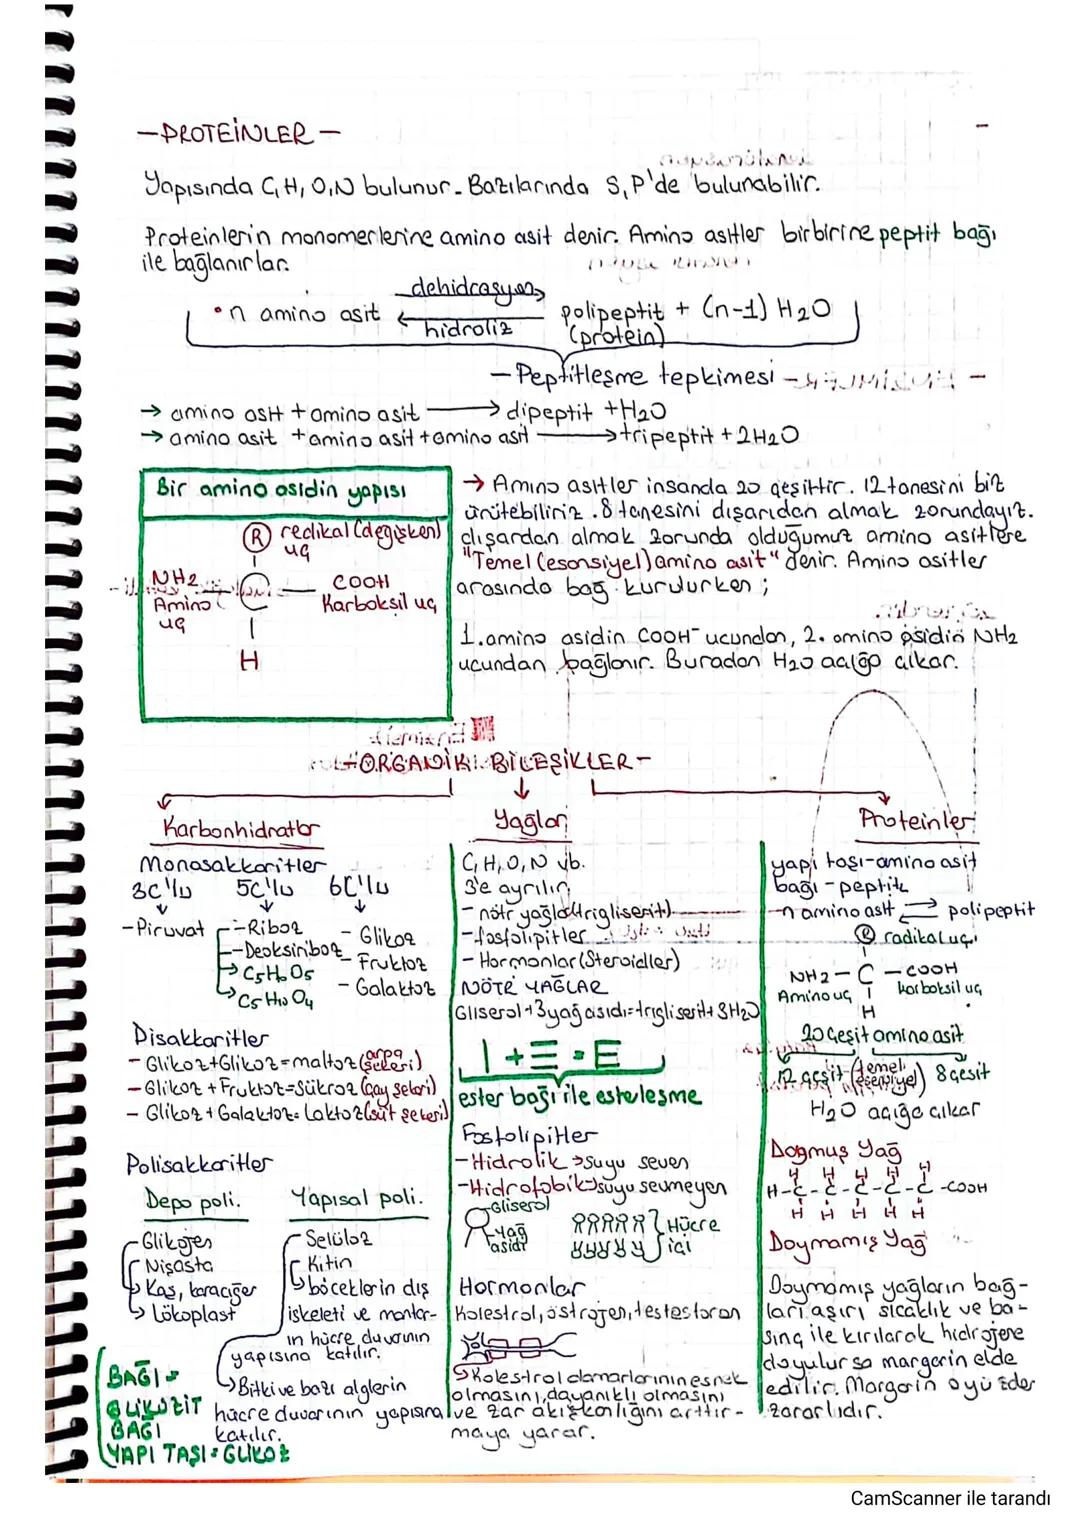 -PROTEİNLER-
Yapısında C, H, O, N bulunur. Bazılarında S, P'de bulunabilir.
Proteinlerin monomerlerine amino asit denir. Amino asitler birbirine peptit bağı
ile bağlanırlar.
• n amino asit
dehidrasyon
hidroliz
polipeptit + (n-1) H2O
(protein)
- Peptitleşme tepkimesi -
→ amino asit + amino asit → dipeptit + H2O
→ amino asit + amino asit + amino asit → tripeptit + 2H2O
Bir amino asidin yapısı
R redikal (değişken)
uç
NH2
Amino
uç
C
COOH
Karboksil uç
H
→ Amino asitler insanda 20 çeşittir. 12 tanesini biz
üretebiliriz. 8 tanesini dışarıdan almak zorundayız.
dışardan almak zorunda olduğumuz amino asitlere
"Temel (esansiyel) amino asit" denir. Amino asitler
arasında bağ kurulurken ;
1. amino asidin COOH⁻ ucundan, 2. amino asidin NH2
ucundan bağlanır. Buradan H2O açığa çıkar.
-ORGANİK BİLEŞİKLER-
Karbonhidratlar
Monosakkaritler
3C'lu 5C'lu 6C'lu
- Piruvat
- Riboz
- Deoksiriboz
→ C5H10O5
→ C5H10O4
- Glikoz
- Fruktoz
- Galaktoz
Disakkaritler
- Glikoz+Glikoz=maltoz (arpa şekeri)
- Glikoz + Fruktoz=Sükroz (çay şekeri)
- Glikoz + Galaktoz= Laktoz (süt şekeri)
Polisakkaritler
Depo poli.
Glikojen
Nişasta
Kas, karaciğer
Lökoplast
Yapısal poli.
Selüloz
Kitin
böceklerin dış
iskeleti ve mantar-
ın hücre duvarının
yapısına katılır.
Bitki ve bazı alglerin
hücre duvarının yapısına
katılır.
BAĞI =
GLİKOZİT
BAĞI
YAPI TAŞI = GLİKOZ
Yağlar
C, H, O, N vb.
3'e ayrılır;
- nötr yağlar (trigliserit)
- fosfolipitler
- Hormonlar (Steroidler)
NÖTR YAĞLAR
Gliserol + 3 yağ asidi = trigliserit + 3H2O
ester bağı ile esterleşme
Fosfolipitler
- Hidrolik → suyu seven
- Hidrofobik → suyu sevmeyen
Gliserol
Yağ
asidi
Hücre
içi
Hormonlar
Kolestrol, östrojen, testesteron
Kolestrol damarlarının esnek
olmasını, dayanıklı olmasını
ve zar akışkanlığını arttır-
maya yarar.
Proteinler
yapı taşı - amino asit
bağı - peptit
n amino asit ⇄ polipeptit
R radikal uç
NH2 - C - COOH
Amino uç
karboksil uç
H
20 Çeşit amino asit
12 çeşit (temel esensiyel) 8 çeşit
H2O açığa çıkar
Doymuş Yağ
H H H H H
H-C-C-C-C-C-COOH
H H H H H
Doymamış Yağ
Doymamış yağların bağ-
ları aşırı sıcaklık ve ba-
sınç ile kırılarak hidrojene
doyulursa margarin elde
edilir. Margarin o yüzden
zararlıdır.
CamScanner ile tarandı